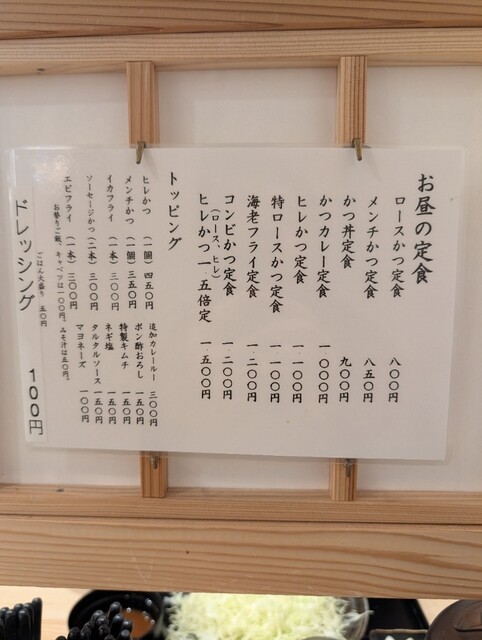 お昼の定食
ロースかつ定食 八〇〇円
メンチかつ定食 八五〇円
かつ丼定食 九〇〇円
かつカレー定食 一〇〇〇円
ヒレかつ定食 一一〇〇円
特ロースかつ定食 一一〇〇円
海老フライ定食 一二〇〇円
コンビかつ定食 一二〇〇円
(ロース、ヒレ)
ヒレかつ一.五倍定 一五〇〇円
トッピング
ヒレかつ (一個) 四五〇円
メンチかつ (一個) 三五〇円
イカフライ (一本) 三〇〇円
ソーセージかつ(二本) 三〇〇円
エビフライ (一本) 三〇〇円
追加カレールー 三〇〇円
ポン酢おろし 一五〇円
特製キムチ 一五〇円
ネギ塩 一五〇円
タルタルソース 一五〇円
マヨネーズ 一〇〇円
お替りご飯、キャベツは一〇〇円。みそ汁は五〇円。
ごはん大盛り 五〇円
ドレッシング 100円